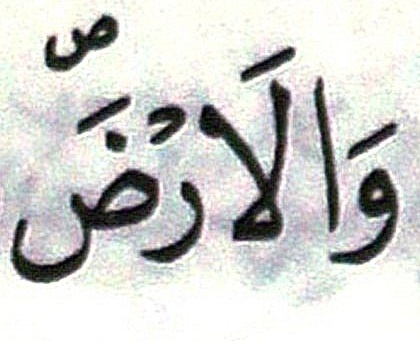 وَالاَرْضَ ص